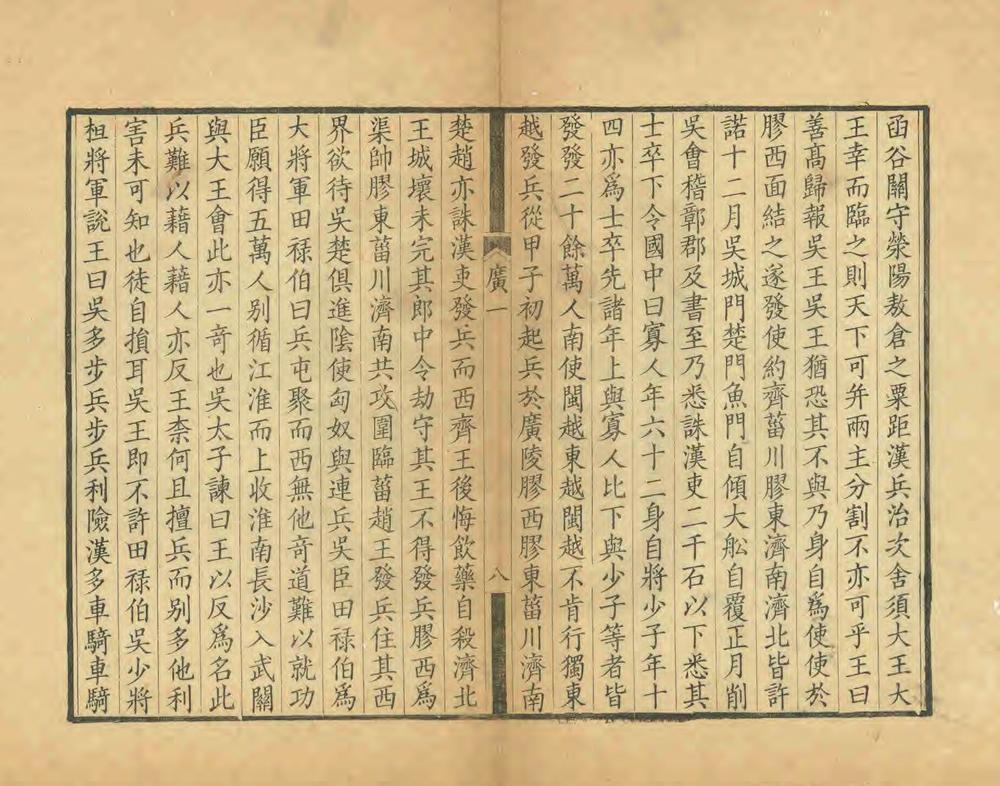 函谷關守滎陽敖倉之粟距漢兵治次舍須大王大
王幸而臨之則天下可并兩主分割不亦可乎王曰
善髙歸報吳王吳王猶恐其不與乃身自爲使使於
膠西面結之遂發使約齊菑川膠東濟南濟北皆許
諾十二月吳城門楚門魚門自傾大船自覆正月削
吳會稽鄣郡及書至乃悉誅漢吏二千石以下悉其
士卒下令國中曰寡人年六十二身自將少子年十
四亦爲士卒先諸年上與寡人比下與少子等者皆
發發二十餘萬人南使閩越東越閩越不肯行獨東
越發兵從甲子初起兵於廣陵膠西膠東菑川濟南
廣一
八
楚趙亦誅漢吏發兵而西齊王後悔飲藥自殺濟北
王城壞未完其郎中令劫守其王不得發兵膠西爲
渠帥膠東菑川濟南共攻圍臨菑趙王發兵住其西
界欲待吳楚俱進隂使匈奴與連兵吳臣田禄伯爲
大將軍田禄伯曰兵屯聚而西無他竒道難以就功
臣願得五萬人别循江淮而上收淮南長沙入武關
與大王會此亦一竒也吳太子諫曰王以反爲名此
兵難以藉人藉人亦反王柰何且擅兵而别多他利
害未可知也徒自損耳吳王即不許田禄伯吳少將
桓將軍說王曰吳多步兵步兵利險漢多車騎車騎